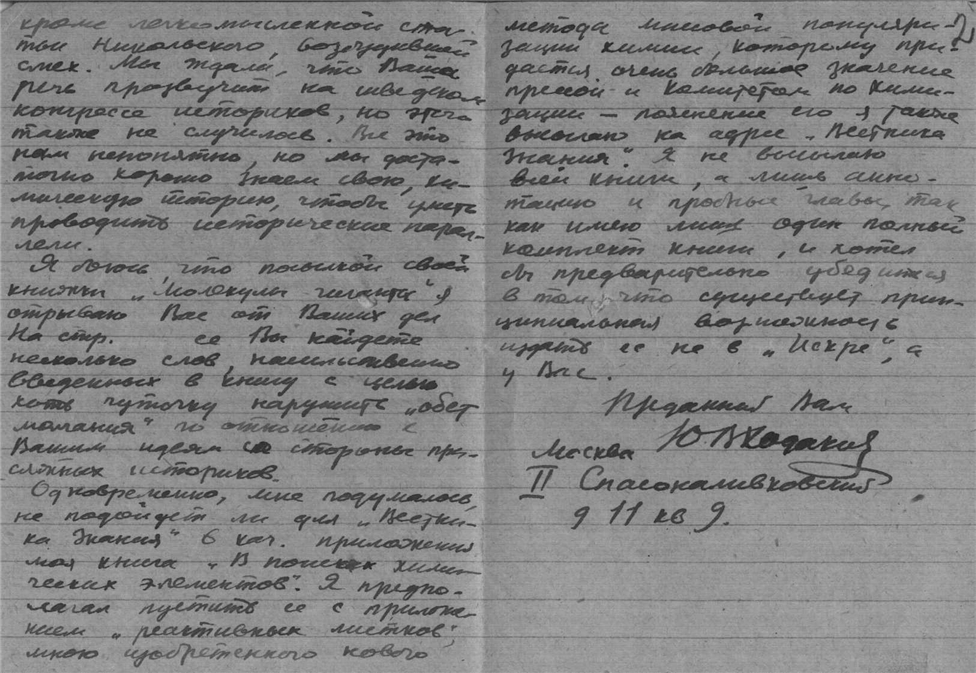 кроме легкомысленной ста-
тьи Никольского, возбудившей
смех. Мы ждали, что Ваша
речь прозвучит на шведском
конгрессе историков, но этого
также не случилось. Все это
нам непонятно, но мы доста-
точно хорошо знаем свою, хи-
мическую историю, чтобы уметь
проводить исторические парал-
лели.
Я боюсь, что посылкой своей
книжки „Молекулы гиганты" я
отрываю Вас от Ваших дел
На стр. ее Вы найдете
несколько слов, насильственно
введенных в книгу с целью
хоть чуточку нарушить „обет
молчания" по отношению к
Вашим идеям со стороны при-
сяжных историков.
Одновременно, мне подумалось,
не подойдет ли для „Вестни-
ка Знания" в кач. приложения
моя книга „В поисках хими-
ческих элементов". Я предпо-
лагал пустить ее с приложе-
нием „реактивных листков",
мною изобретенного нового
2
метода массовой популяри-
зации химии, которому при-
дается очень большое значение
прессой и Комитетом по Хими-
зации — пояснение его я также
высылаю на адрес „Вестника
Знания". Я не высылаю
всей книги, а лишь анно-
тацию и пробные главы, так
как имею лишь один полный
комплект книги, и хотел
бы предварительно убедиться
в том, что существует прин-
ципиальная возможность
издать ее не в „Искре", а
у Вас.
Преданный Вам
Ю В Ходаков
Москва
II Спасоналивковский
д 11 кв 9.